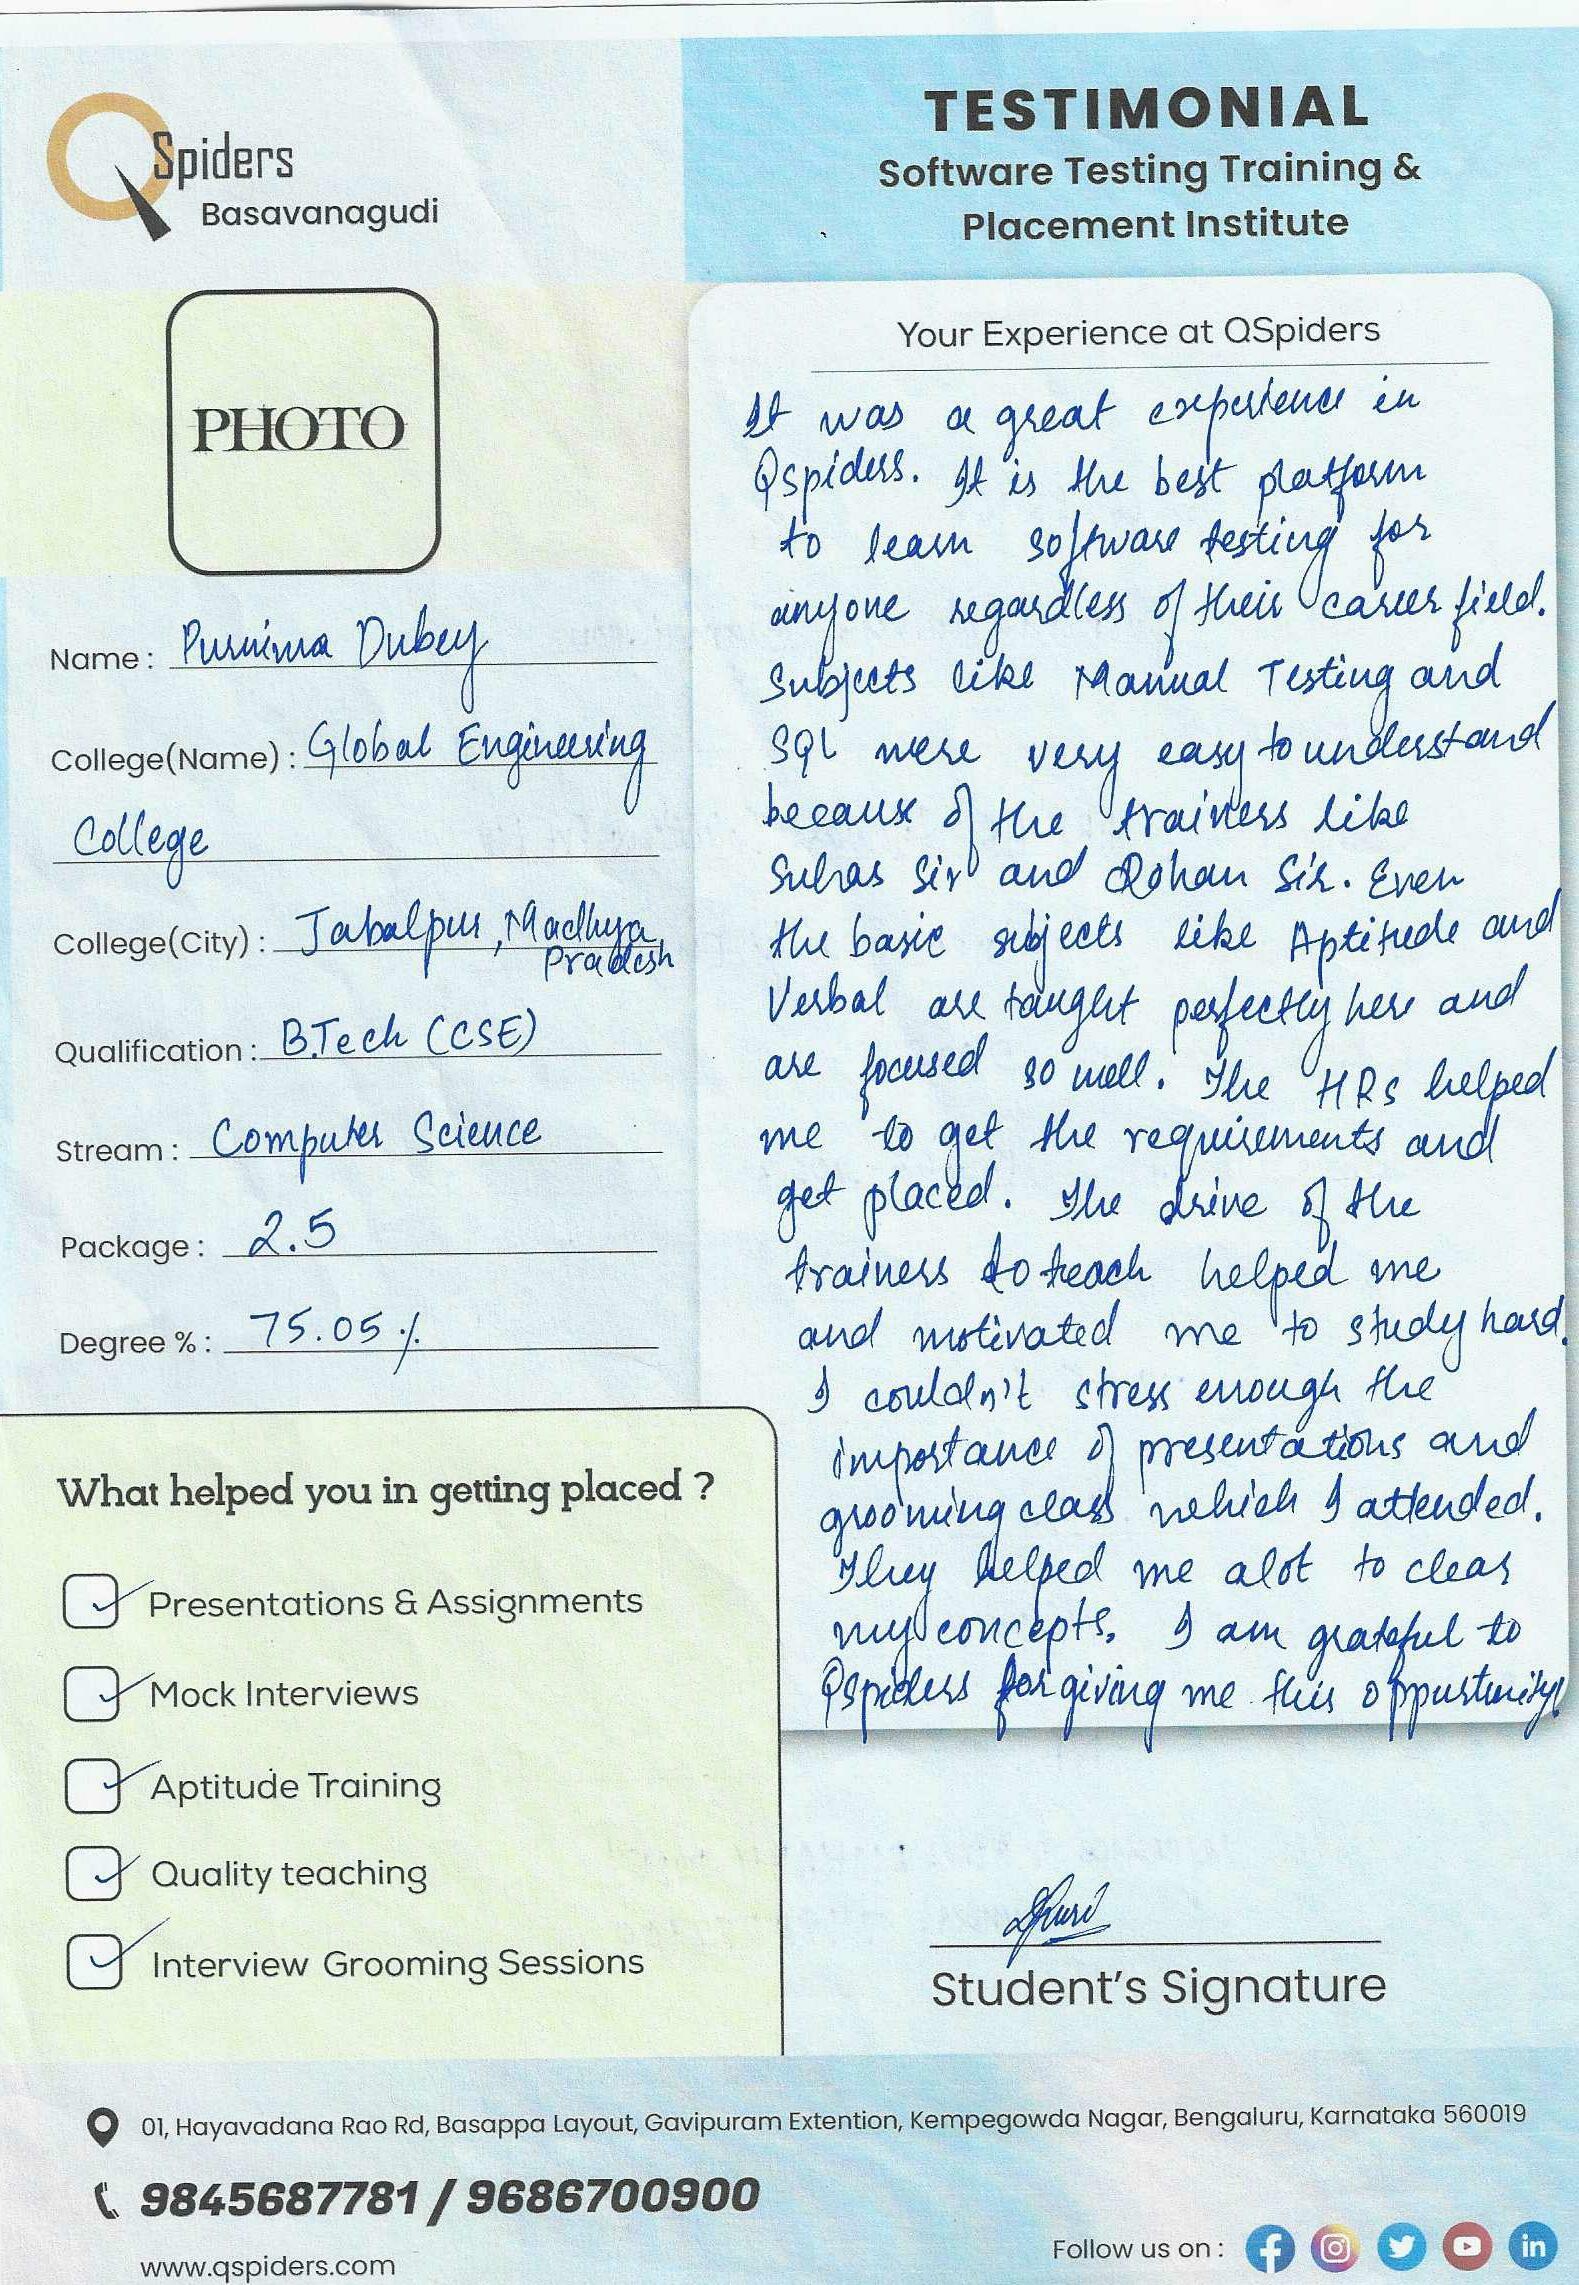 QSpiders
Basavanagudi
TESTIMONIAL
Software Testing Training &
Placement Institute
PHOTO
Name : Purnima Dubey
College(Name) : Global Engineering
College
College(City) : Jabalpur, Madhya
Pradesh
Qualification : B.Tech (CSE)
Stream : Computer Science
Package : 2.5
Degree % : 75.05 %
What helped you in getting placed ?
Presentations & Assignments
Mock Interviews
Aptitude Training
Quality teaching
Interview Grooming Sessions
Your Experience at QSpiders
It was a great experience in
Qspiders. It is the best platform
to learn software testing for
anyone regardless of their career field.
Subjects like Manual Testing and
SQL were very easy to understand
because of the trainers like
Suhas Sir and Rohan Sir. Even
the basic subjects like Aptitude and
Verbal are taught perfectly here and
are focused so well. The HRs helped
me to get the requirements and
get placed. The drive of the
trainers to teach helped me
and motivated me to study hard.
I couldn't stress enough the
importance of presentations and
grooming class which I attended.
They helped me alot to clear
my concepts. I am grateful to
Qspiders for giving me this oppurtunity!
Student's Signature
01, Hayavadana Rao Rd, Basappa Layout, Gavipuram Extention, Kempegowda Nagar, Bengaluru, Karnataka 560019
9845687781 / 9686700900
www.qspiders.com
Follow us on :